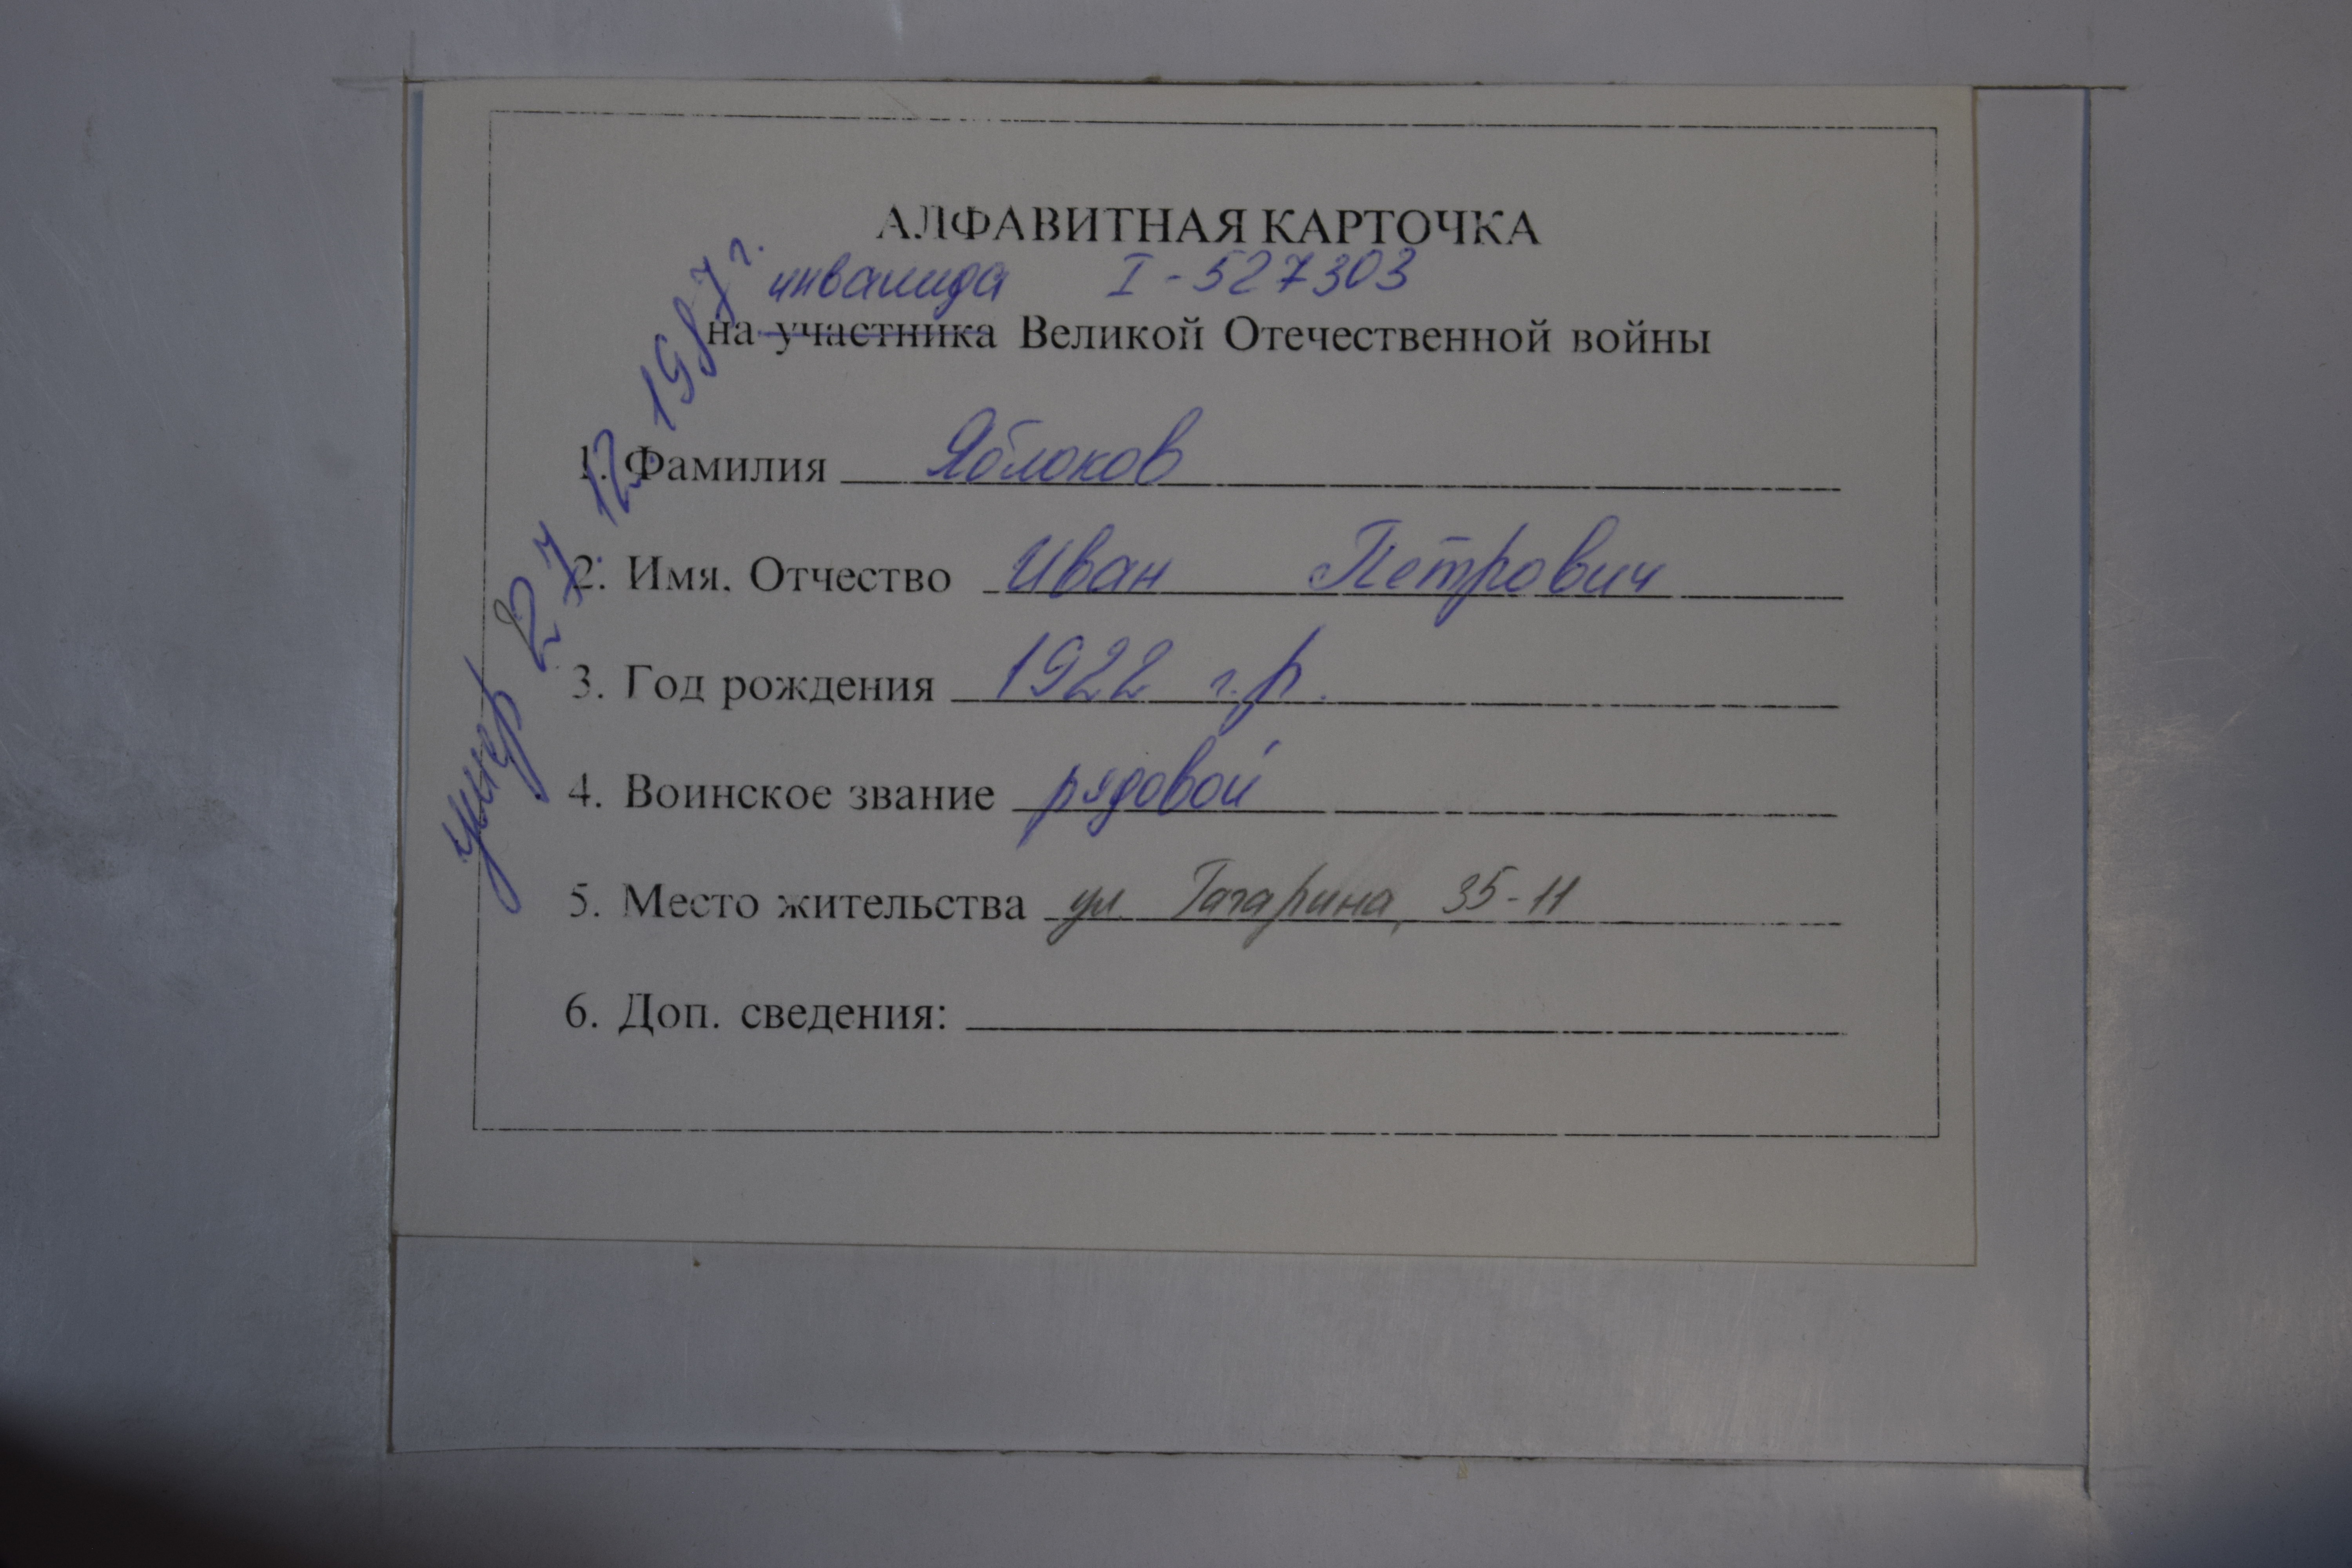 АЛФАВИТНАЯ КАРТОЧКА
инвалида I-527303
на участника Великой Отечественной войны
1. Фамилия Яблоков
2. Имя. Отчество Иван Петрович
3. Год рождения 1922 г.р.
4. Воинское звание рядовой
5. Место жительства ул. Гагарина, 35-11
6. Доп. сведения:
умер 27.12.1987 г.